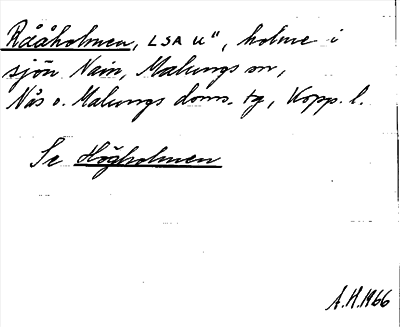 Rååholmen, LSA U", holme i
sjön Nain, Malungs sn,
Nås o. Malungs doms. tg, Kopp. l.
Se Högholmen
A.H.1966